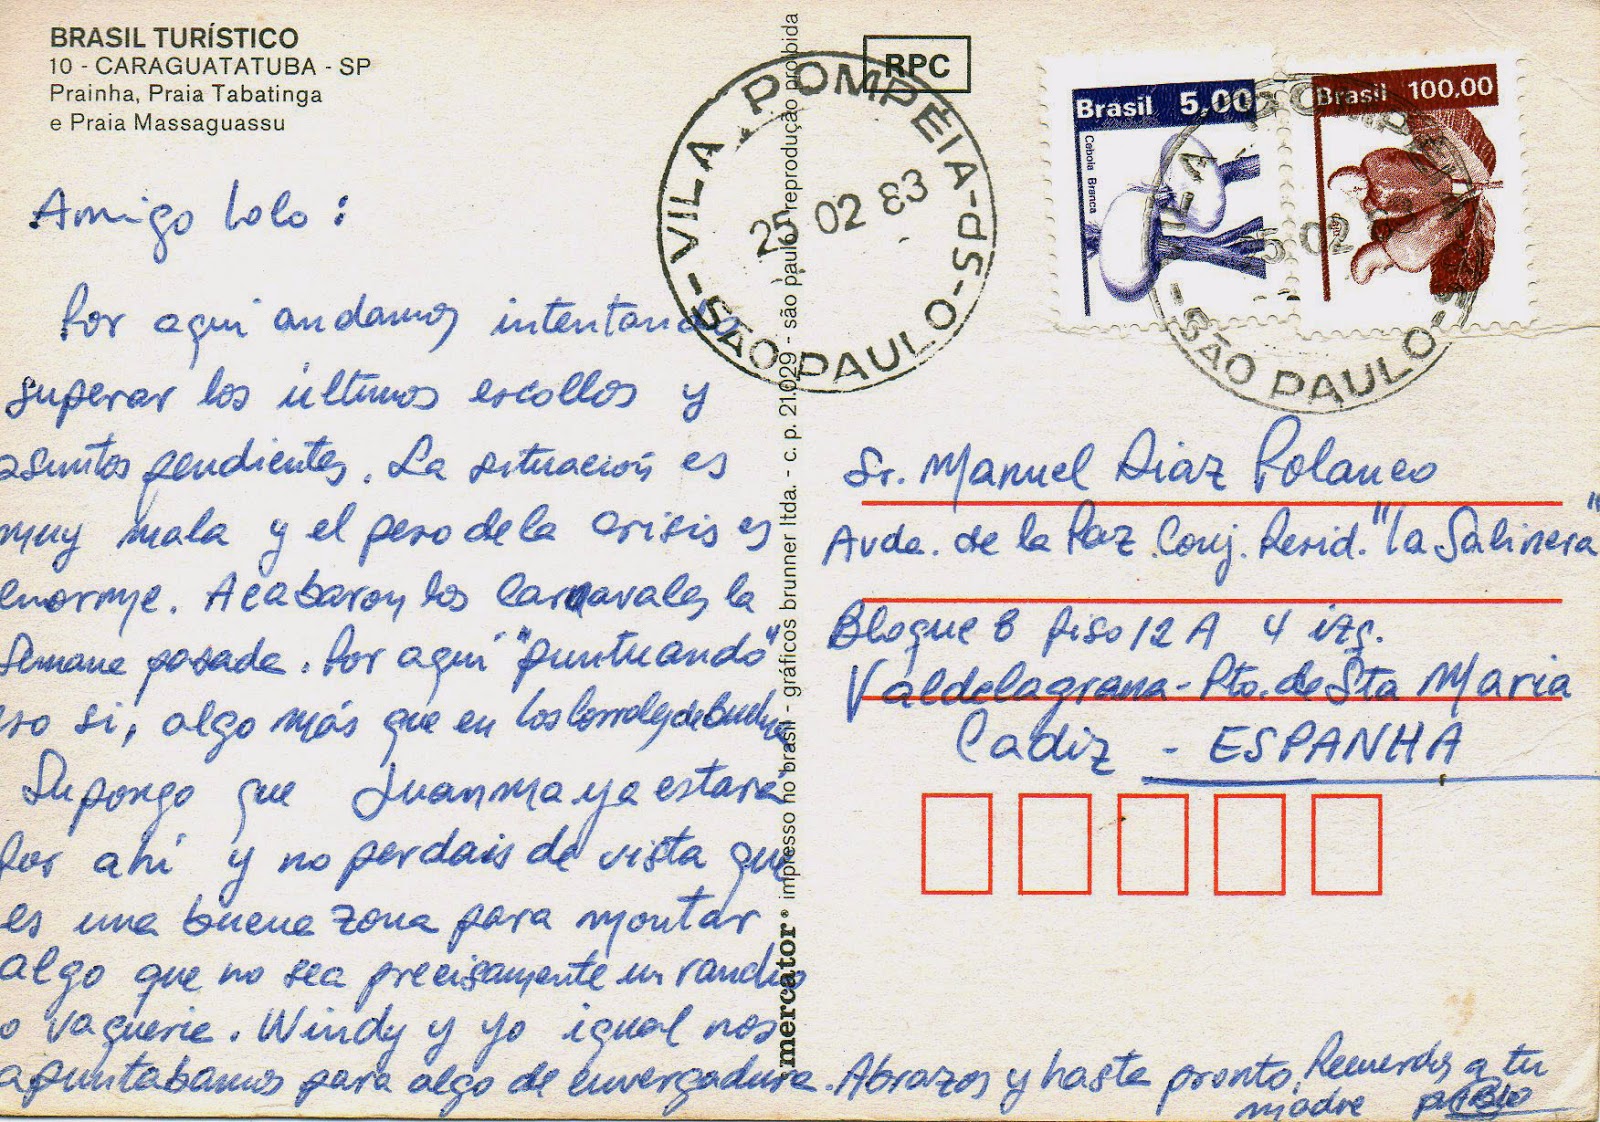 BRASIL TURÍSTICO
10 - CARAGUATATUBA - SP
Prainha, Praia Tabatinga
e Praia Massaguassu
RPC
VILA POMPÉIA-SP-SÃO PAULO-
25 02 83
Brasil 5,00
Cebola Branca
Brasil 100,00
Amigo Lolo:
Por aquí andamos intentando
superar los últimos escollos y
asuntos pendientes. La situación es
muy mala y el peso de la crisis es
enorme. Acabaron los carnavales la
semana pasada. Por aquí "puntuando"
eso si, algo más que en los corrales de
Supongo que Juanma ya estará
por ahí y no perdais de vista que
es una buena zona para montar
algo que no sea precisamente un rancho
o vaquerie. Windy y yo igual nos
apuntabamos para algo de envergadura. Abrazos y hasta pronto. Recuerdos a tu
madre
mercator® impresso no brasil - gráficos brunner ltda. - c. p. 21.029 - são paulo reprodução proibida
Sr. Manuel Diaz Polanco
Avda. de la Paz. Conj. Resid. "la Salinera"
Bloque 8 Piso 12 A 4 izq.
Valdelagrana - Pto. de Sta Maria
Cadiz - ESPANHA